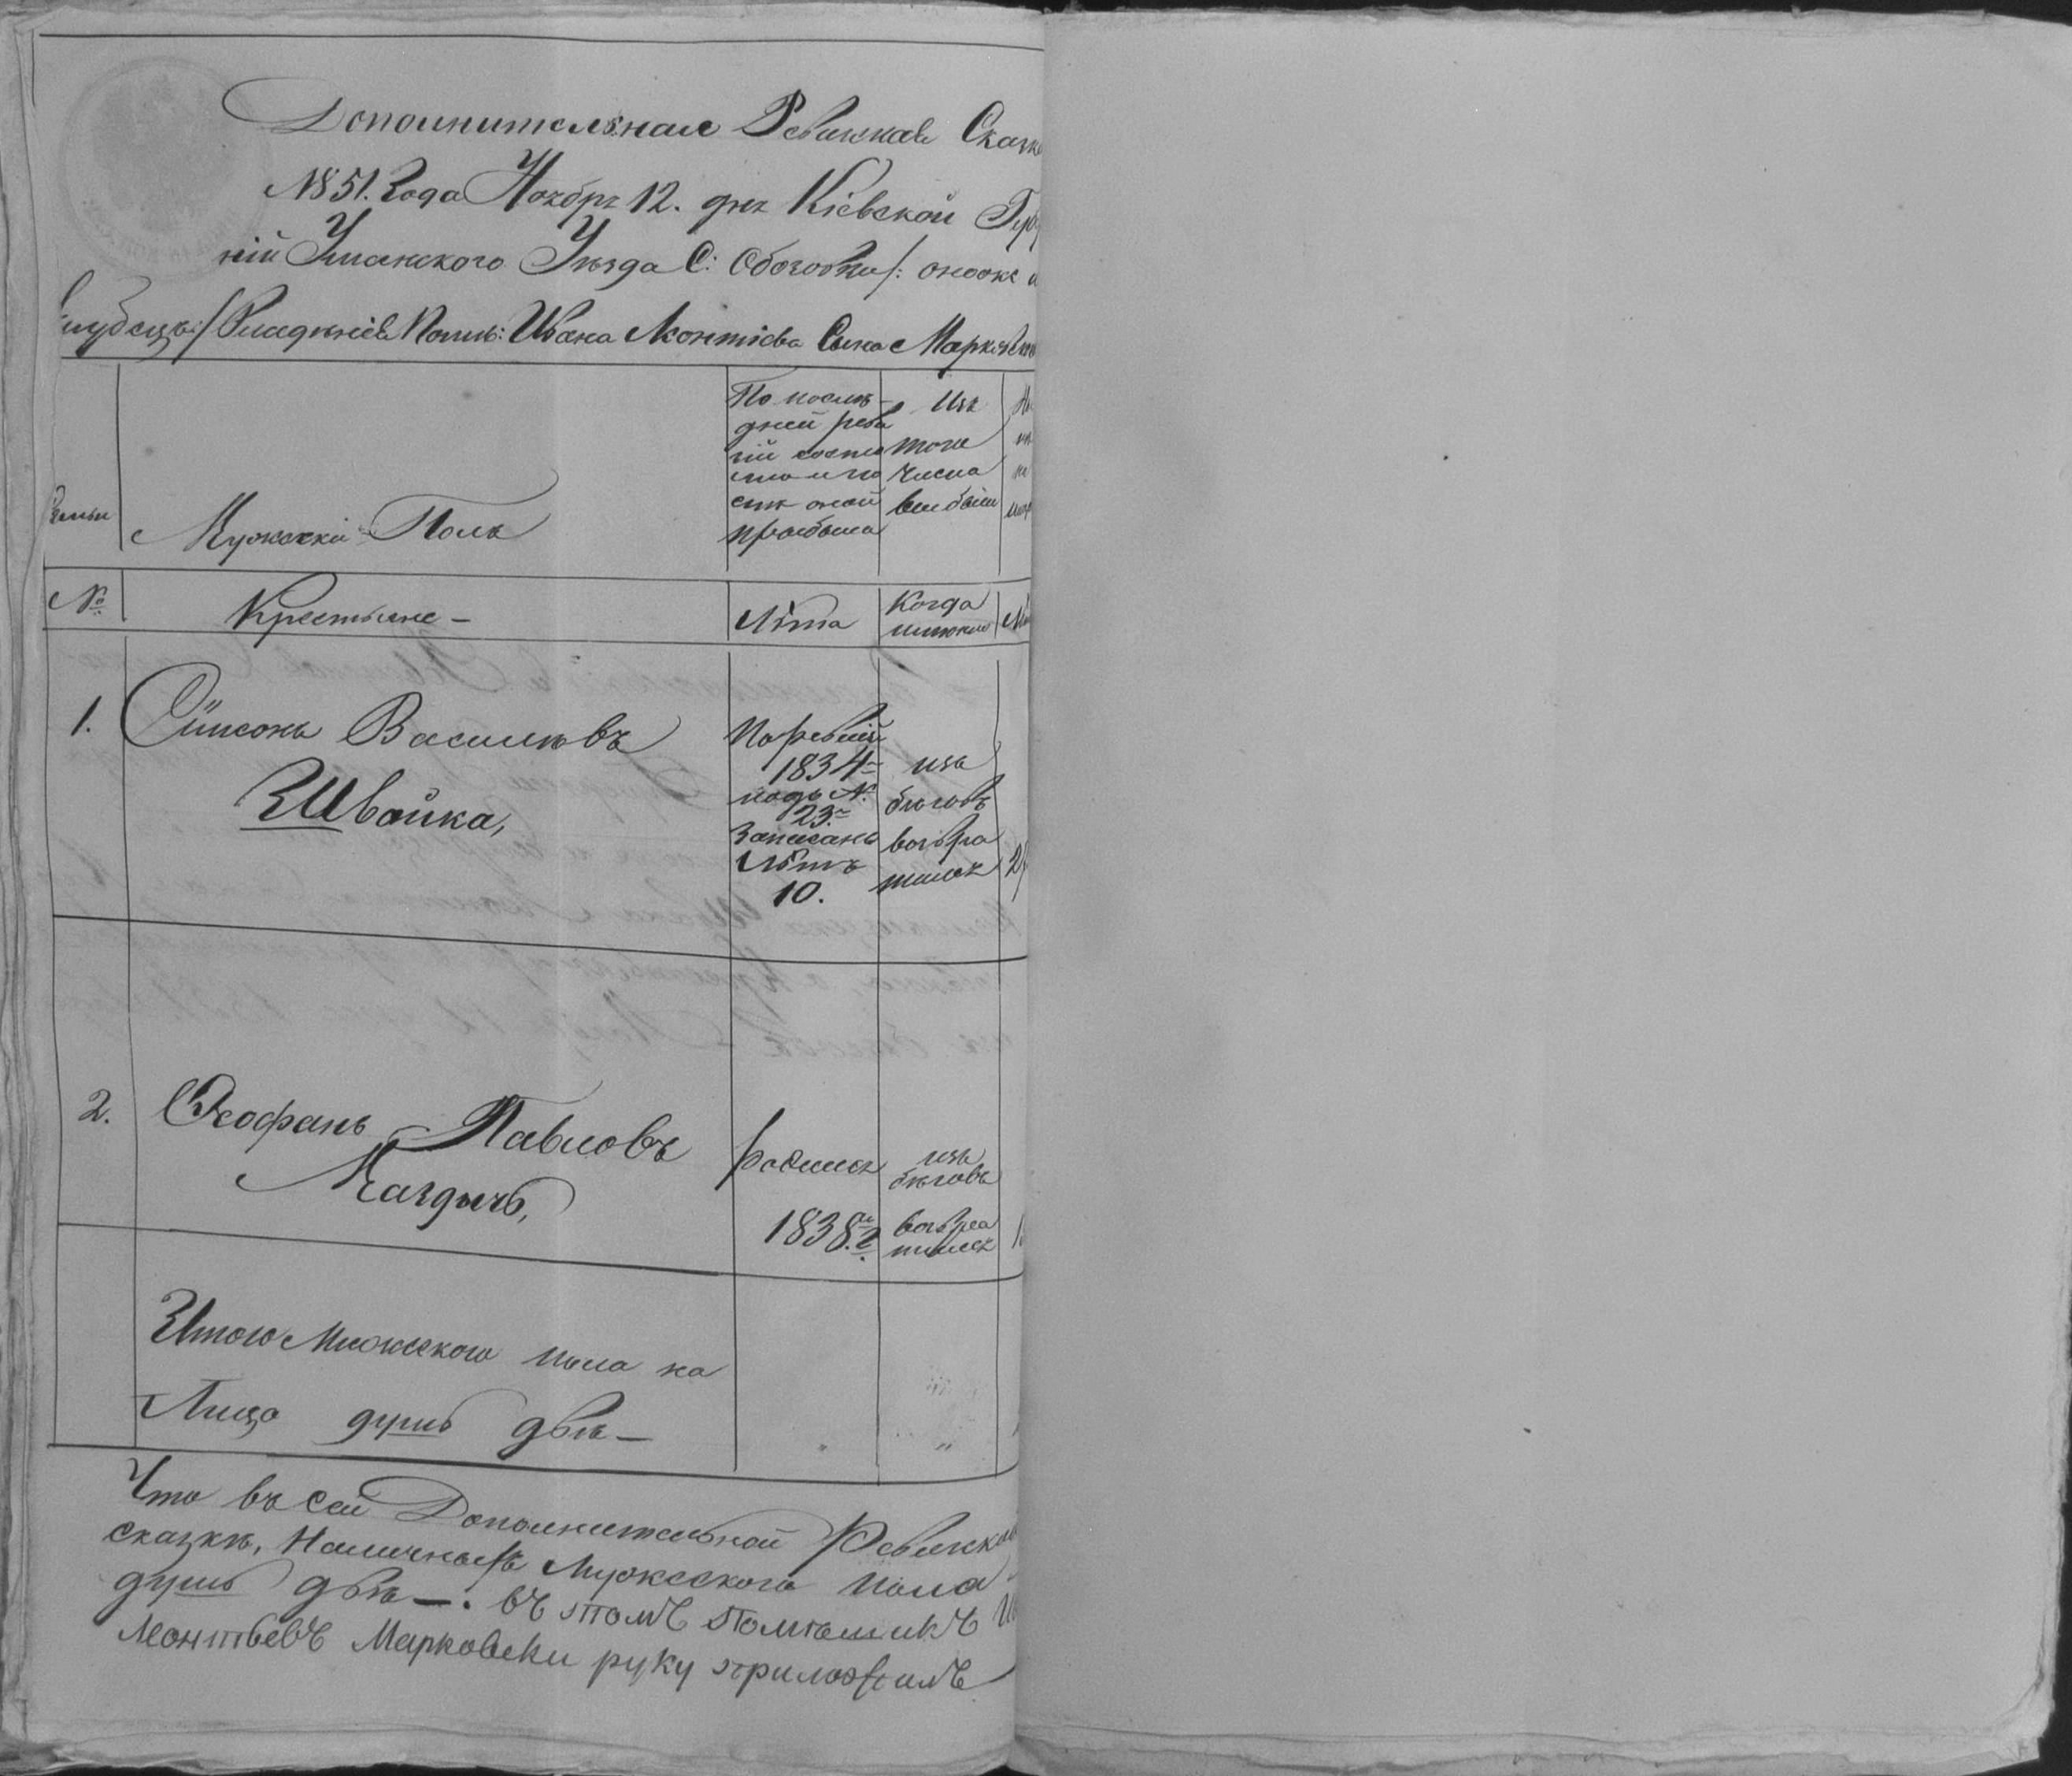 Дополнительная Ревижская Сказка
1851. Года Ноября 12. дня Кіевской Губе
ній Уманского Уезда С: Оборовки /: онооже и
Владѣнія Помѣ: Ивана Леонтіева Сына Марковск
По послѣ-
дней реви
зій состо
яло и по
слѣ оной
прибыло
Изъ
того
числа
выбыли
Семьи
Мужескій Полъ
№
Крестьяне –
Лѣта
Когда
именно
1.
Симеонъ Васильевъ
Швайка,
По ревизій
1834
подъ №
23.
записанъ
лѣтъ
10.
изъ
бѣговъ
возвра
тился
2
2.
Феофанъ Павловъ
родился
1838. г.
изъ
бѣговъ
возвра
тился
1
Итого Мужескаго пола на
Лицо душъ двѣ –
Что въ сей Дополнительной Ревижской
сказкѣ, Наличныхъ Мужескаго пола
душъ двѣ –. въ томъ Помѣщикъ И
Леонтьевъ Марковски руку приложилъ